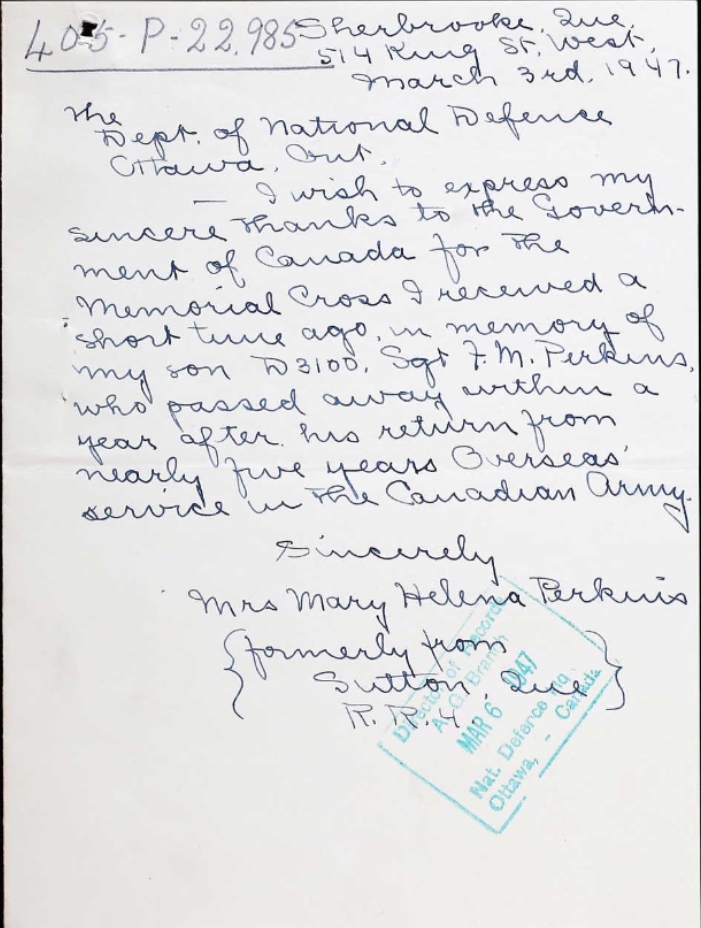 405-P-22,985
Sherbrooke, Que.
514 King St. West,
March 3rd, 1947.
The
Dept. of National Defence
Ottawa, Ont.
— I wish to express my
sincere thanks to the Govern-
ment of Canada for the
Memorial Cross I received a
short time ago, in memory of
my son D3100, Sgt F. M. Perkins,
who passed away within a
year after his return from
nearly five years Overseas'
service in the Canadian Army.
Sincerely
Mrs Mary Helena Perkins
{formerly from
Sutton, Que}
R. R. 4.
Director of Records
A. G. Branch
MAR 6 1947
Nat. Defence Hq
Ottawa, - Canada